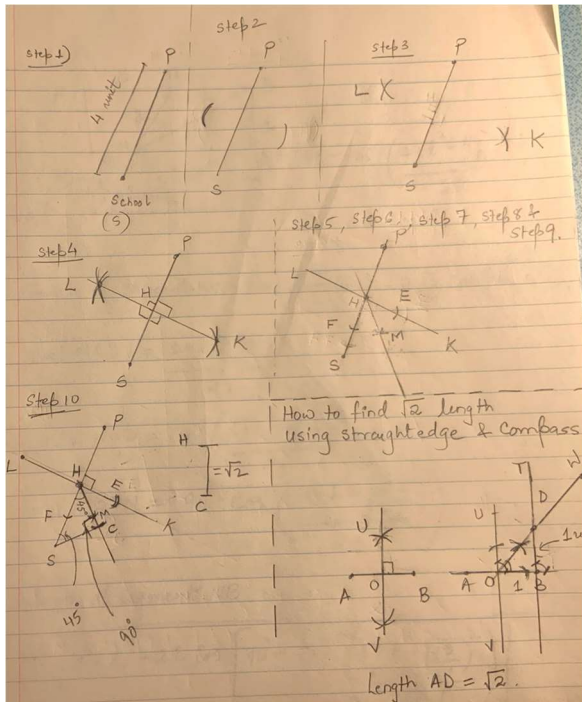 Step 1)
P
4 unit
School
(S)
Step 2
P
S
Step 3
P
L
K
S
Step 4
P
L
H
K
S
Step 5, Step 6, Step 7, Step 8 &
Step 9.
P
L
H
E
F
M
K
S
Step 10
P
L
H
E
45°
F
M
C
K
S
45°
90°
H
= √2
C
How to find √2 length
using straightedge & Compass
U
A
O
B
V
T
W
D
U
A
O
1
B
V
Length AD = √2.